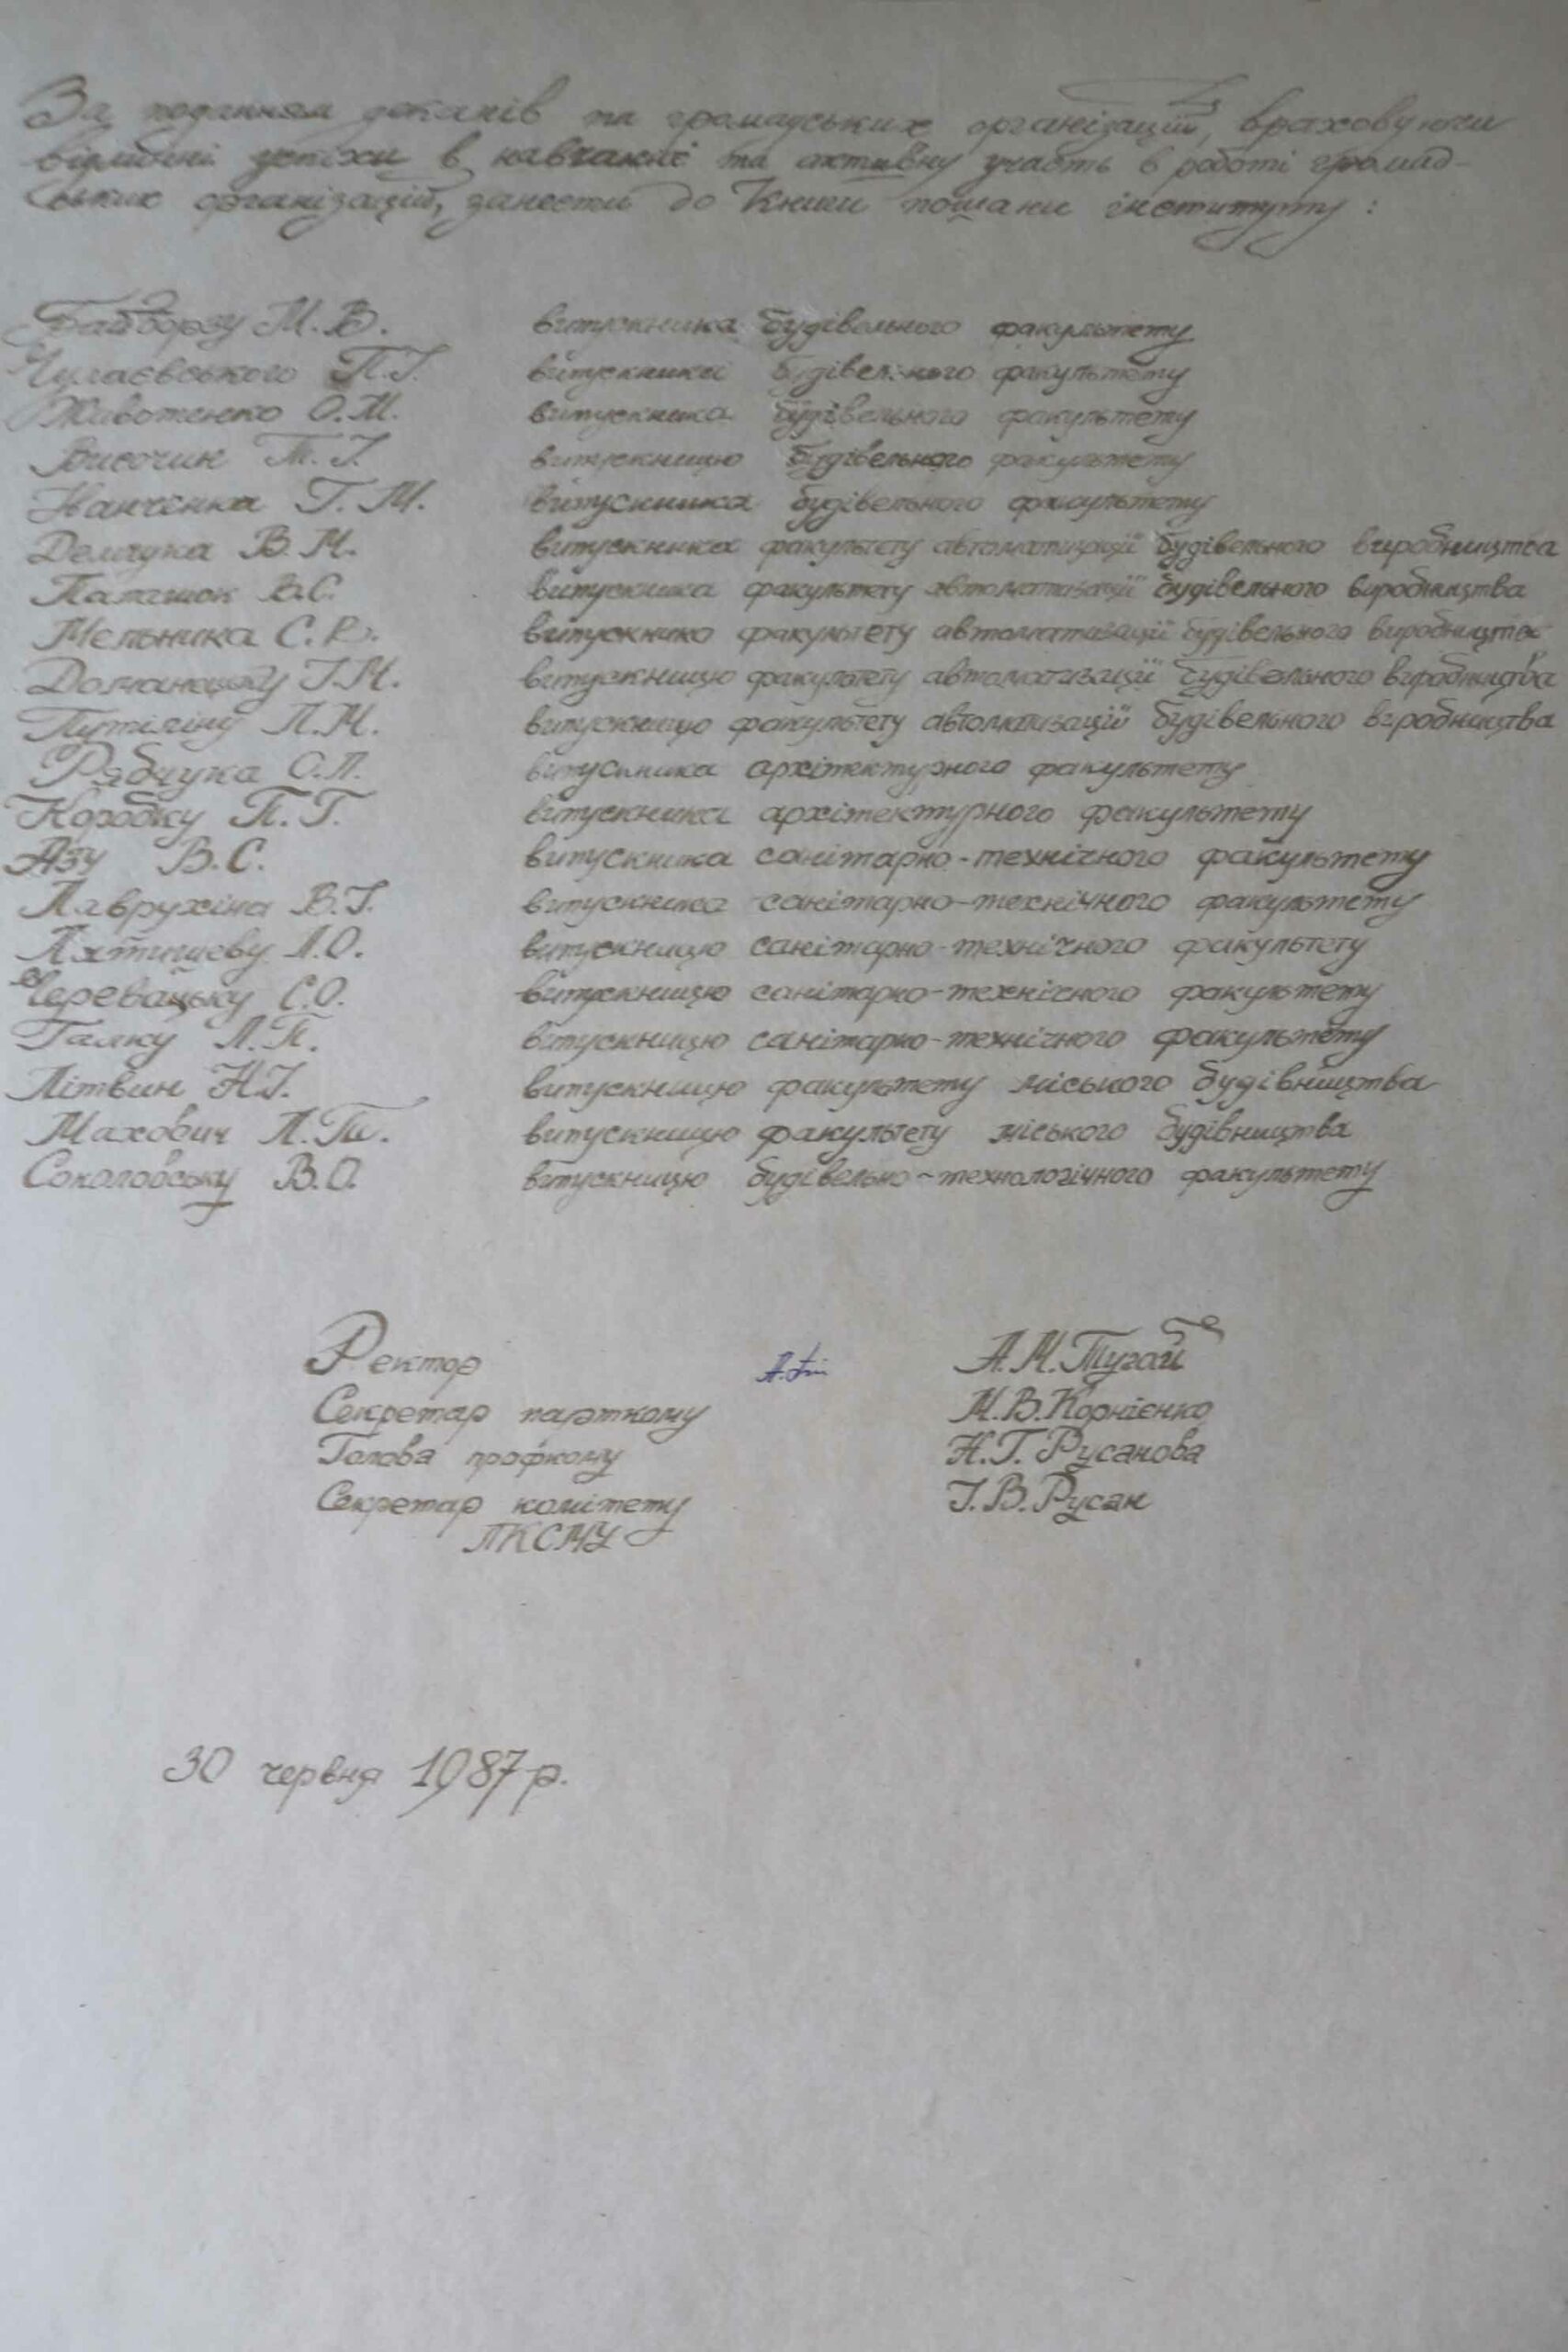 За поданням деканів та громадських організацій, враховуючи
відмінні успіхи в навчанні та активну участь в роботі громад-
ських організацій, занести до Книги пошани інституту:
Байборзу М.В. випускника будівельного факультету
Чулаєвського П.І. випускника будівельного факультету
Животенко О.М. випускника будівельного факультету
Височин Т.І. випускницю будівельного факультету
Нанченка Г.М. випускника будівельного факультету
В.М. випускника факультету автоматизації будівельного виробництва
В.С. випускника факультету автоматизації будівельного виробництва
Мельника С.В. випускника факультету автоматизації будівельного виробництва
Доманацьку І.М. випускницю факультету автоматизації будівельного виробництва
Путіліну Л.М. випускницю факультету автоматизації будівельного виробництва
Рябчука О.Л. випускника архітектурного факультету
Коробку П.Г. випускника архітектурного факультету
Азу В.С. випускника санітарно-технічного факультету
Лаврухіна В.І. випускника санітарно-технічного факультету
Лятишеву Л.О. випускницю санітарно-технічного факультету
Черевацьку С.О. випускницю санітарно-технічного факультету
Галку Л.П. випускницю санітарно-технічного факультету
Літвин Н.І. випускницю факультету міського будівництва
Махович Л.Т. випускницю факультету міського будівництва
Соколовську В.О. випускницю будівельно-технологічного факультету
Ректор А.М.Тугай
Секретар парткому М.В.Корнієнко
Голова профкому Н.Г.Русанова
Секретар комітету І.В.Русан
ЛКСМУ
30 червня 1987р.